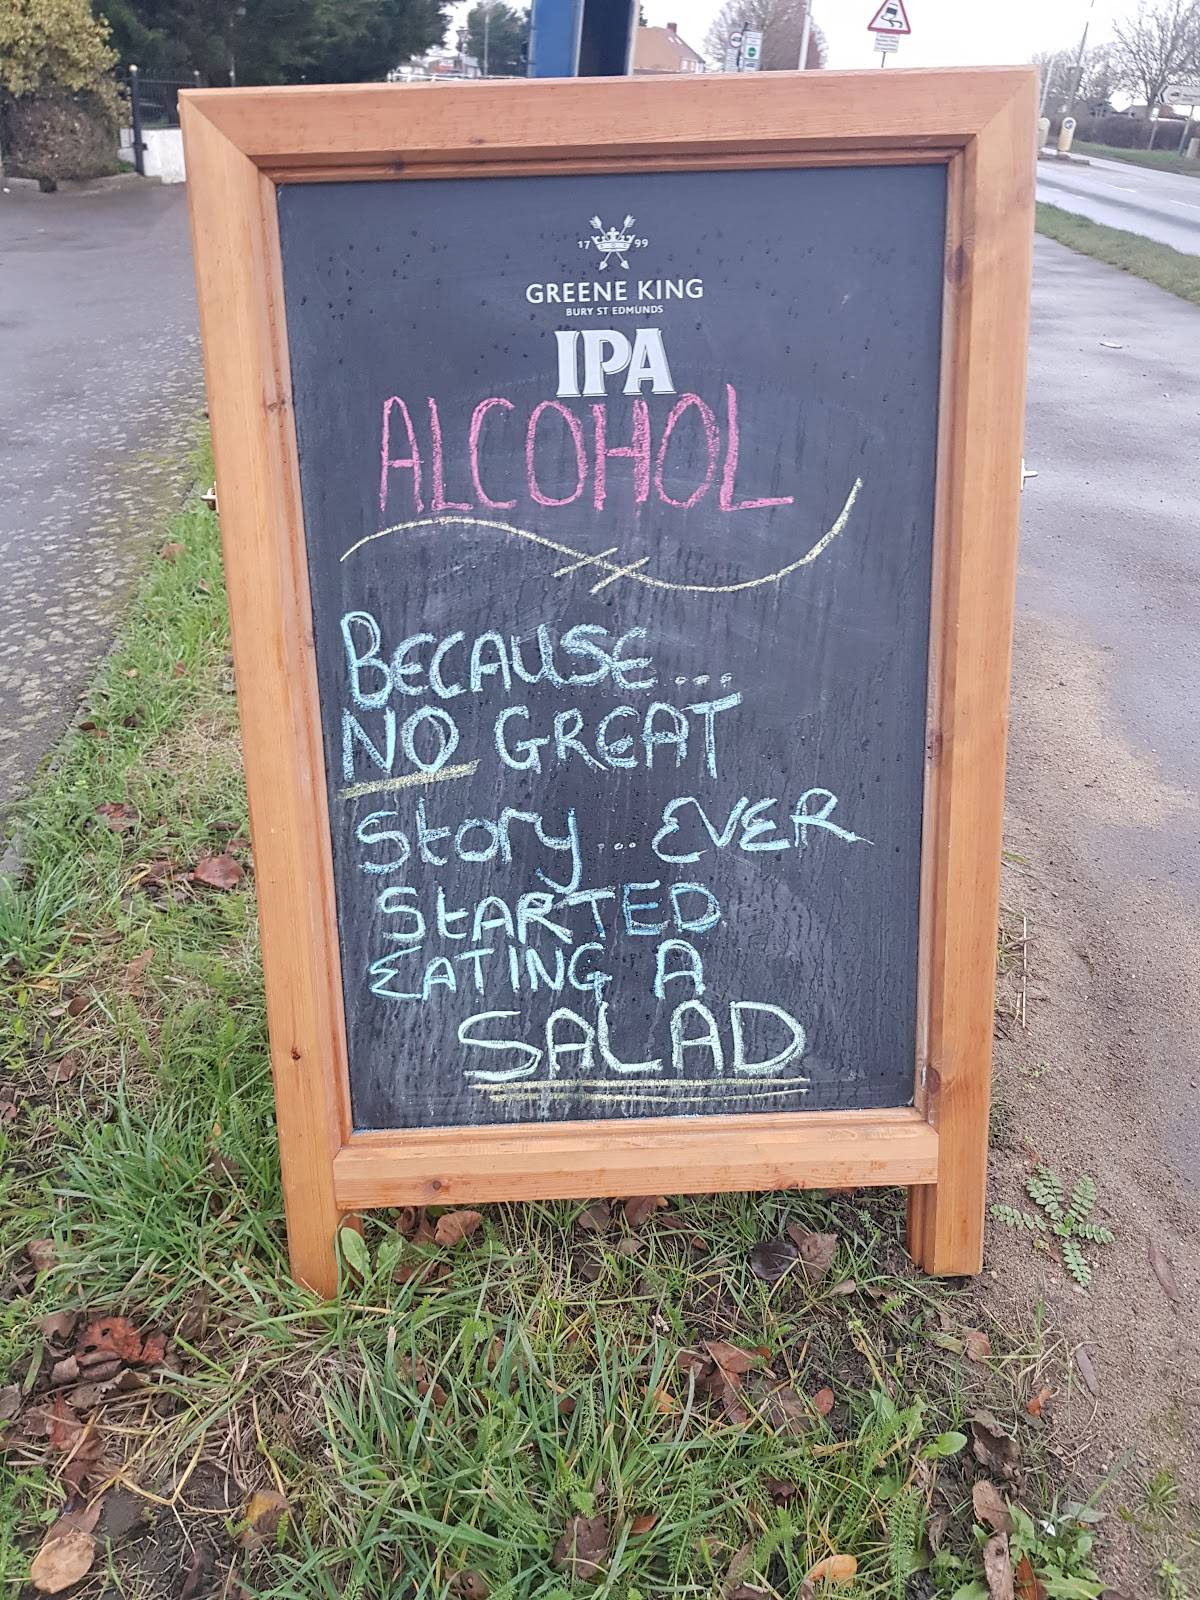 17 99
GREENE KING
BURY ST EDMUNDS
IPA
ALCOHOL
BECAUSE...
NO GREAT
Story... EVER
STARTED
EATING A
SALAD